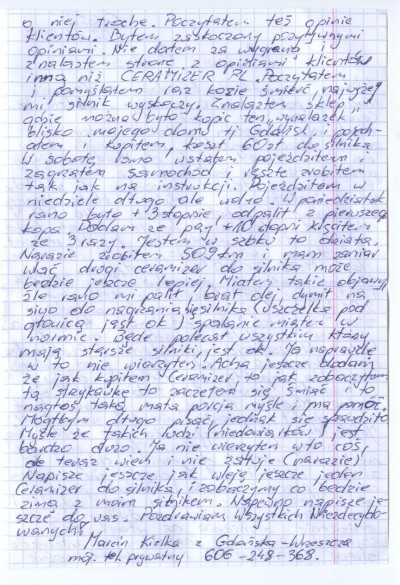 o niej trochę. Poczytałem też opinie
klientów. Byłem zaskoczony pozytywnymi
opiniami. Nie dałem za wygraną i
znalazłem stronę z opiniami klientów
inną niż CERAMIZER PL. Poczytałem
i pomyślałem raz kozie śmierć, najwyżej
mi silnik wyskoczy. Znalazłem sklep
gdzie można było kupić ten "wynalazek"
blisko mojego domu tj Gdańsk. pojech-
ałem i kupiłem, koszt 60 zł do silnika
W sobotę rano wstałem pojeździłem i
zagrzałem samochód i resztę zrobiłem
tak jak na instrukcji. Pojeździłem w
niedziele długo ale wolno. W poniedziałek
rano było +3 stopnie, odpalił z pierwszego
kopa. Dodam że przy +10 stopni kręciłem
ze 3 razy. Jestem w szoku to działa.
Narazie zrobiłem 509 km i mam zamiar
wlać drugi ceramizer do silnika może
będzie jeszcze lepiej. Miałem takie objawy
źle rano mi palił, brał olej, dymił na
siwo do nagrzania się silnika (uszczelka pod
głowicą jest ok) spalanie miałem w
normie. Będę polecał wszystkim który
mają starsze silniki, jest ok. Ja naprawdę
w to nie wierzyłem. Acha jeszcze dodam
że jak kupiłem Ceramizer, to jak zobaczyłem
tą strzykawkę to zacząłem się śmiać na
nagłos, taka mała porcja myślę i ma pomóc.
Mógłbym długo pisać, jednak się sprawdziło
Myślę że takich ludzi (niedowiarków) jest
bardzo dużo. Ja nie wierzyłem w to coś,
ale teraz wiem i nie żałuję (narazie)
Napiszę jeszcze jak wleję jeszcze jeden
Ceramizer do silnika i zobaczymy co będzie
zimą z moim silnikiem. Napewno napiszę je-
szcze do was. Pozdrawiam wszystkich Niezdecydo-
wanych
Marcin Kielka z Gdańska-Wrzeszcza
mój tel. prywatny 606-248-368.